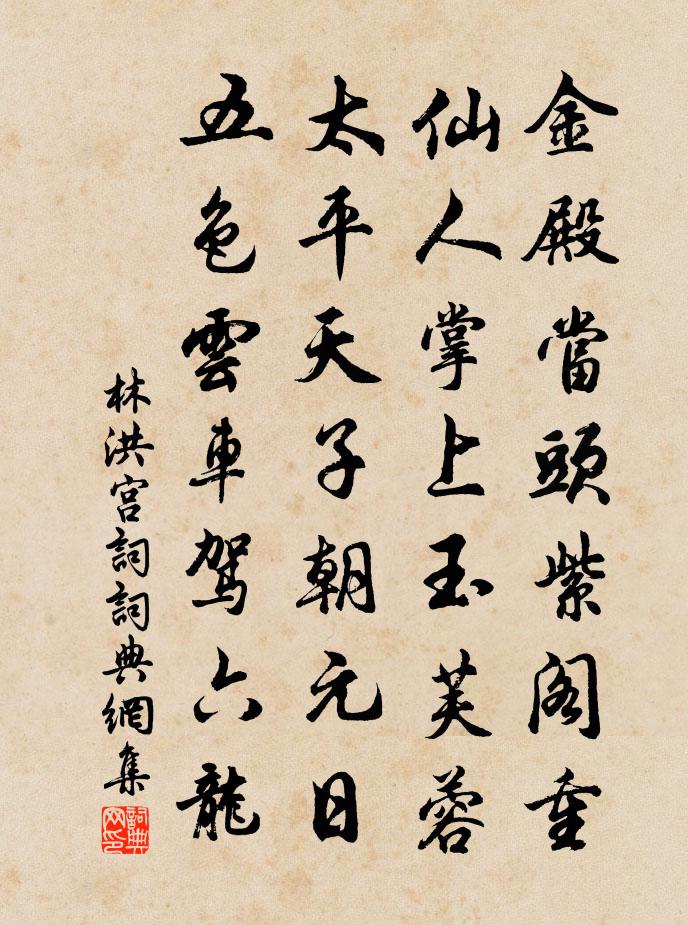 金殿當頭紫阁重
仙人掌上玉芙蓉
太平天子朝元日
五色雲車駕六龍
林洪宫詞詞典網集
詞典网印